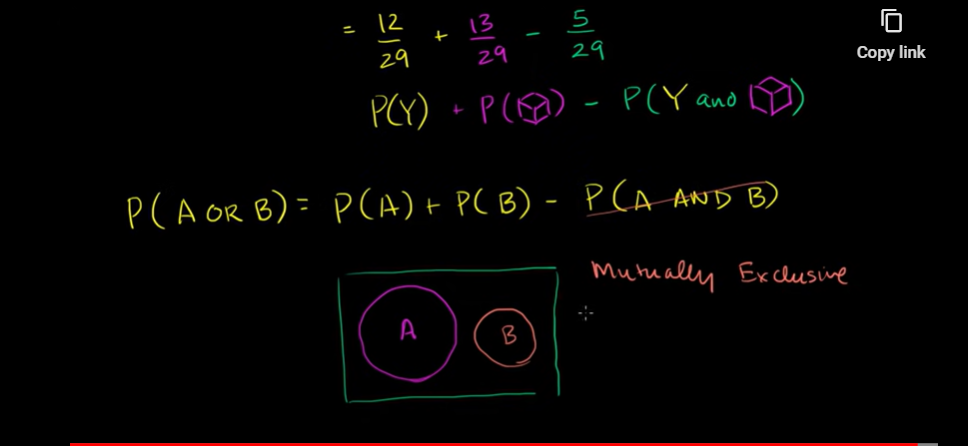 = 12/29 + 13/29 - 5/29
Copy link
P(Y) + P( ) - P(Y and )
P(A OR B) = P(A) + P(B) - P(A AND B)
Mutually Exclusive
A
B